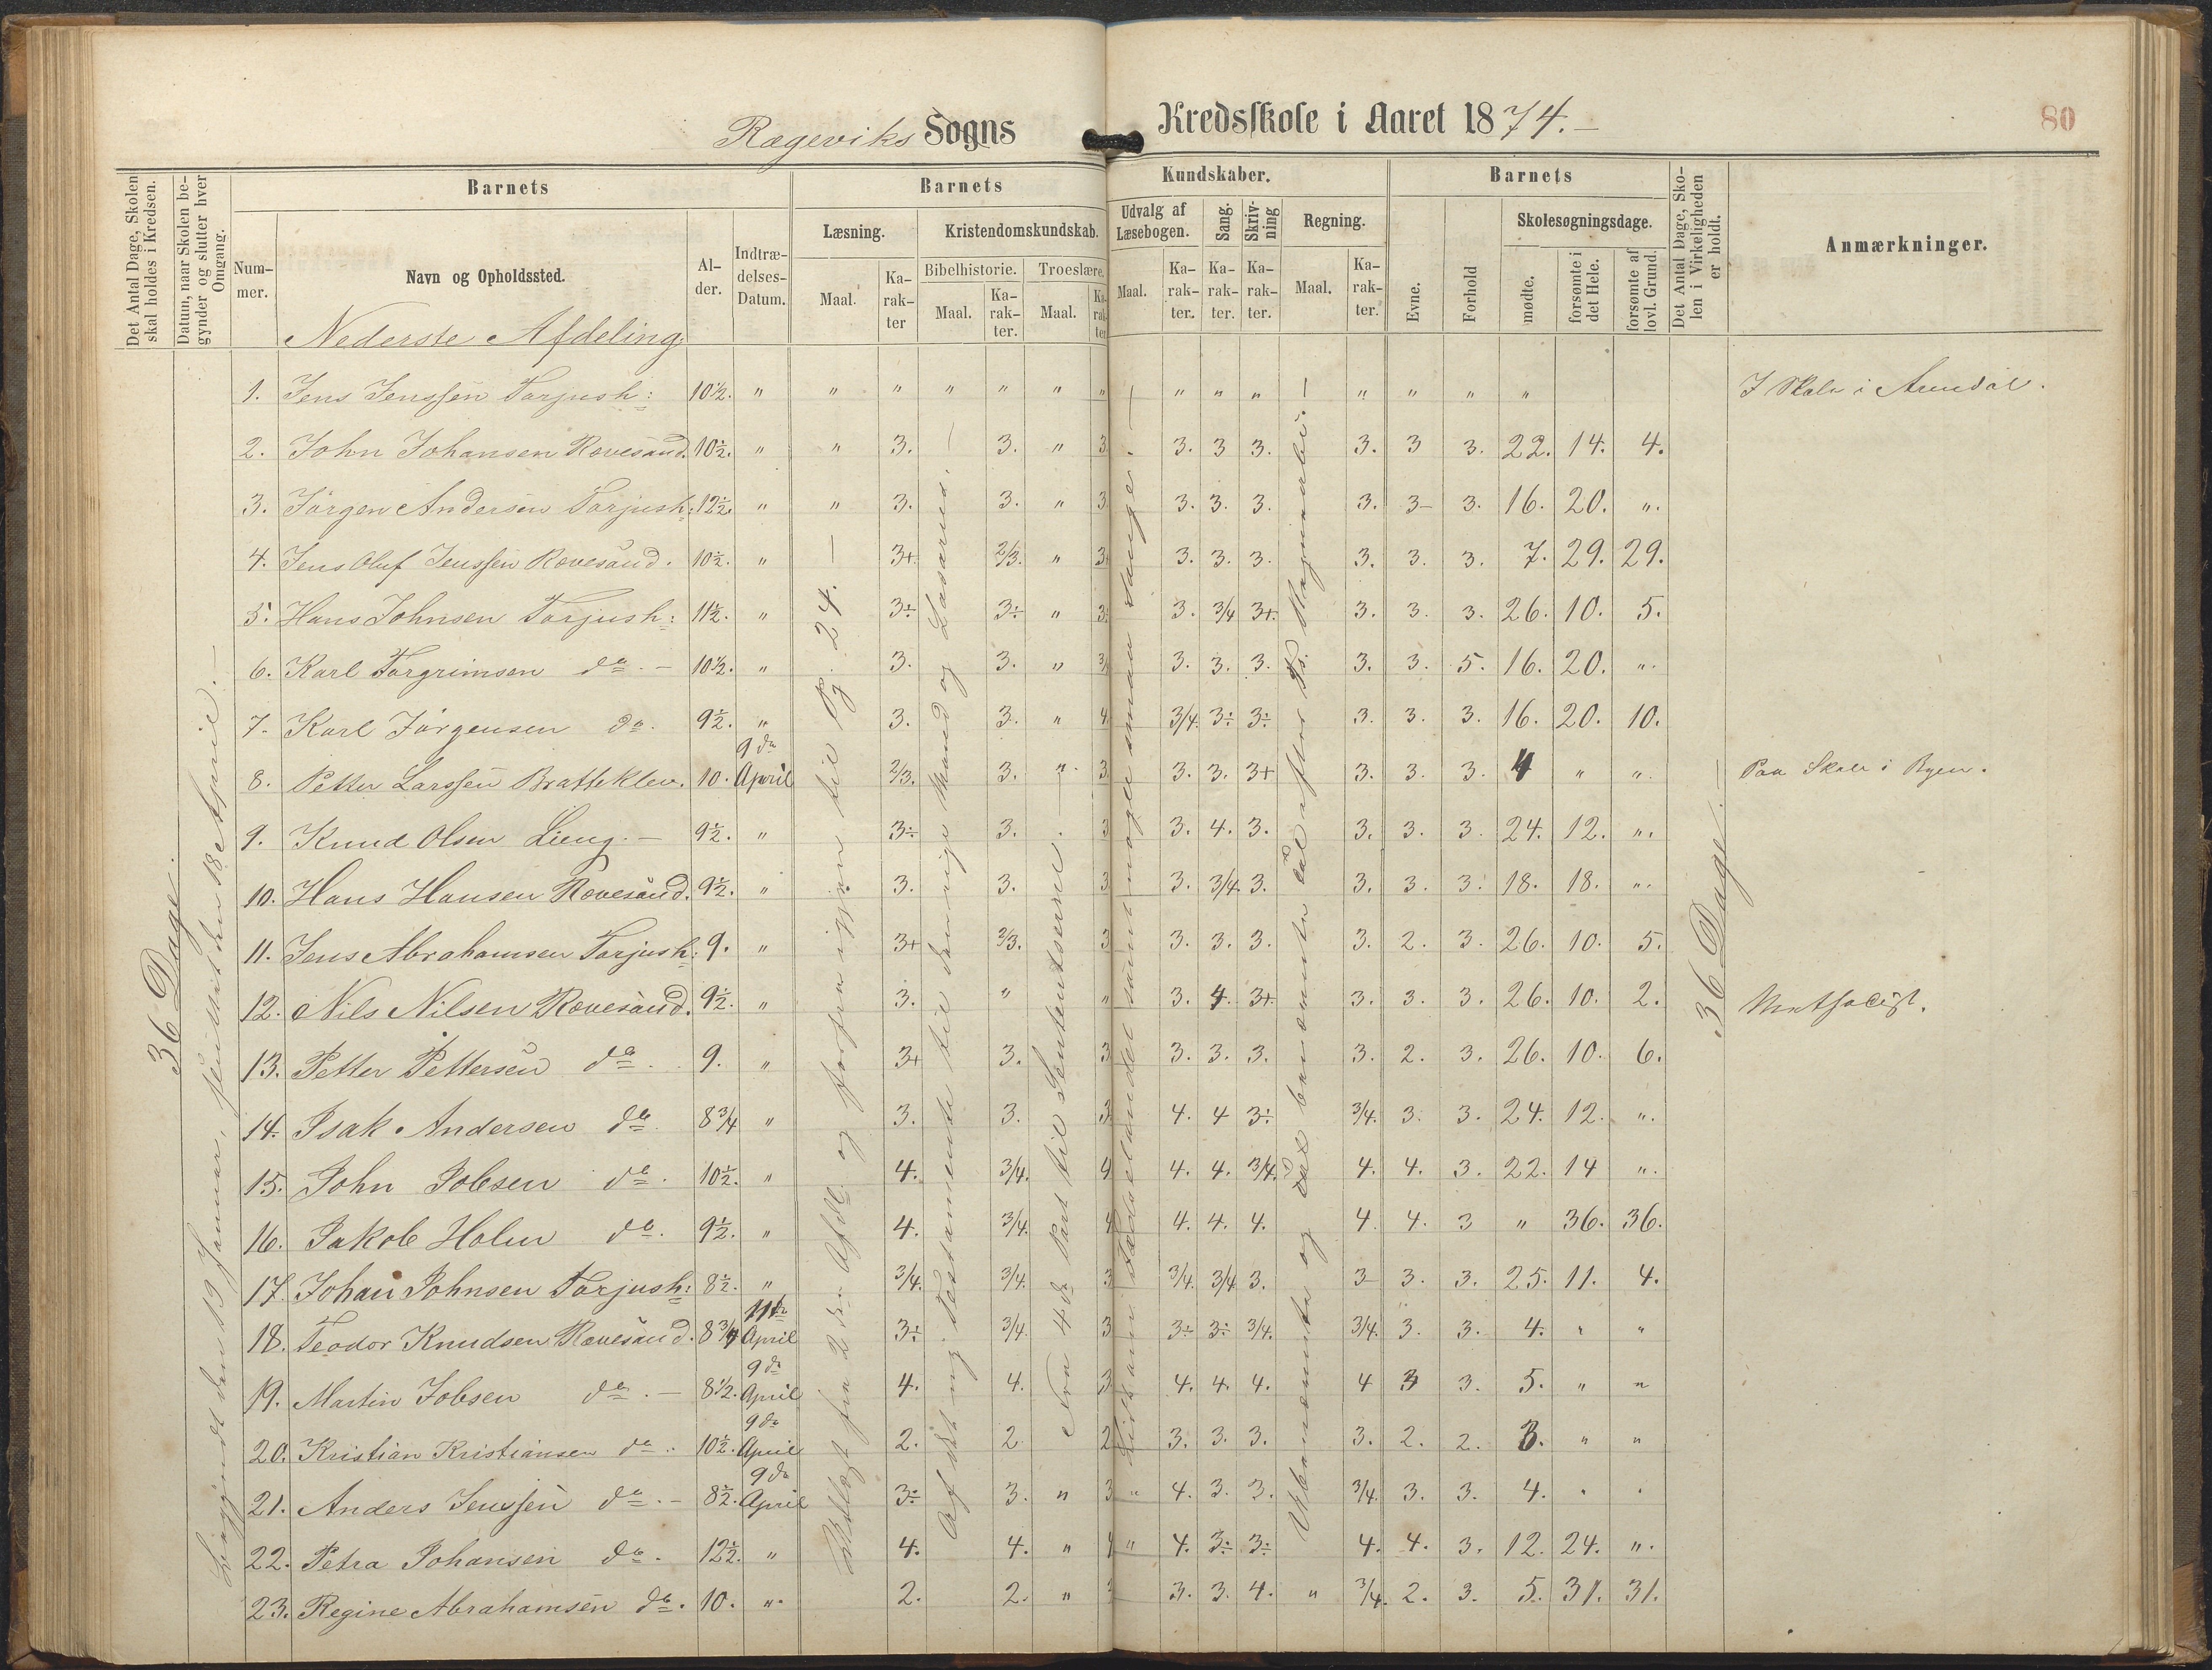 Rægeviks Sogns Kredsskole i Aaret 1874.-
80
Det Antal Dage, Skolen skal holdes i Kredsen.
Datum, naar Skolen begynder og slutter hver Omgang.
Barnets
Barnets
Kundskaber.
Barnets
Det Antal Dage, Skolen i Virkeligheden er holdt.
Anmærkninger.
Nummer.
Navn og Opholdssted.
Alder.
Indtrædelses-Datum.
Læsning.
Kristendomskundskab.
Udvalg af Læsebogen.
Sang.
Skrivning
Regning.
Evne.
Forhold
Skolesøgningsdage.
Bibelhistorie.
Troeslære.
Maal.
Karakter
Maal.
Karakter.
Maal.
Karakter
Maal.
Karakter.
Karakter.
Karakter.
Maal.
Karakter.
mødte.
forsømte i det Hele.
forsømte af lovl. Grund.
Nederste Afdeling.
36 Dage.
36 Dage.-
1. Jens Jenssen Torjush: 10½. " " " " " " " " " " " " " " I Skole i Arendal.
2. John Johansen Rævesand. 10½. " " 3. 3. " 3 3. 3 3. 3. 3 3. 22. 14. 4.
3. Jørgen Andersen Torjush: 12½. " " 3. 3. " 3 3. 3. 3. 3. 3- 3. 16. 20. ".
4. Jens Oluf Jenssen Rævesand. 10½. " 3+ 2/3. " 3+ 3. 3. 3. 3. 3. 3. 7. 29. 29.
5. Hans Johnsen Torjush: 11½. " 3÷ 3÷ " 3÷ 3. 3/4 3+. 3. 3. 3. 26. 10. 5.
6. Karl Torgrimsen do.- 10½. " 3. 3. " 3/4 3. 3. 3. 3. 3. 5. 16. 20. ".
7. Karl Jørgensen do. 9½. " 3. 3. " 4 3/4. 3÷ 3÷ 3. 3. 3. 16. 20. 10.
8. Petter Larssen Bratteklev. 10. 9de April 2/3. 3. " 3 3. 3. 3+ 3. 3. 3. 4 " ". Paa Skole i Byen.
9. Knud Olsen Lieng.- 9½. " 3÷ 3. 3 3. 4. 3. 3. 3. 3. 24. 12. ".
10. Hans Hansen Rævesand. 9½. " 3. 3. 3 3. 3/4. 3. 3. 3. 3. 18. 18. ".
11. Jens Abrahamsen Torjush: 9. " 3+ 2/3. 3 3. 3. 3. 3. 2. 3. 26. 10. 5.
12. Nils Nilsen Rævesand. 9½. " 3. " " 3. 4. 3+ 3. 3. 3. 26. 10. 2.
13. Petter Pettersen do. 9. " 3+ 3. 3 3. 3. 3. 3. 2. 3. 26. 10. 6.
14. Isak Andersen do 8¾ " 3. 3. 3 4. 4 3÷ 3/4. 3. 3. 24. 12. ".
15. John Jobsen do. 10½. " 4. 3/4. 4 4. 4. 3/4. 4. 4. 3. 22. 14 ".
16. Jakob Holm do. 9½. " 4. 3/4. 4 4. 4. 4. 4. 4. 3 " 36. 36.
17. Johan Johnsen Torjush: 8½. " 3/4. 3/4. 3 3/4. 3/4 3. 3 3. 3. 25. 11. 4.
18. Teodor Knudsen Rævesand. 8¾ 11te April 3÷ 3/4. 3 3÷ 3÷ 3/4. 3/4. 3. 3. 4. " "
19. Martin Jobsen do.- 8½. 9de April 4. 4. 3 4. 4. 4. 4 3 3. 5. " "
20. Kristian Kristiansen do. 10½. 9de April 2. 2. 2 3. 3. 3. 3. 2. 2. 3. " "
21. Anders Jenssen do.- 8½. 9de April 3÷ 3. " 3 " 4. 3. 3. 3/4. 3. 3. 4. " "
22. Petra Johansen do. 12½. " 4. 4. " 4 " 4. 3÷ 3÷ 4. 4. 3. 12. 24. ".
23. Regine Abrahamsen do. 10. ". 2. 2. " 3 3. 3. 4. " 3/4. 2. 3. 5. 31. 31.